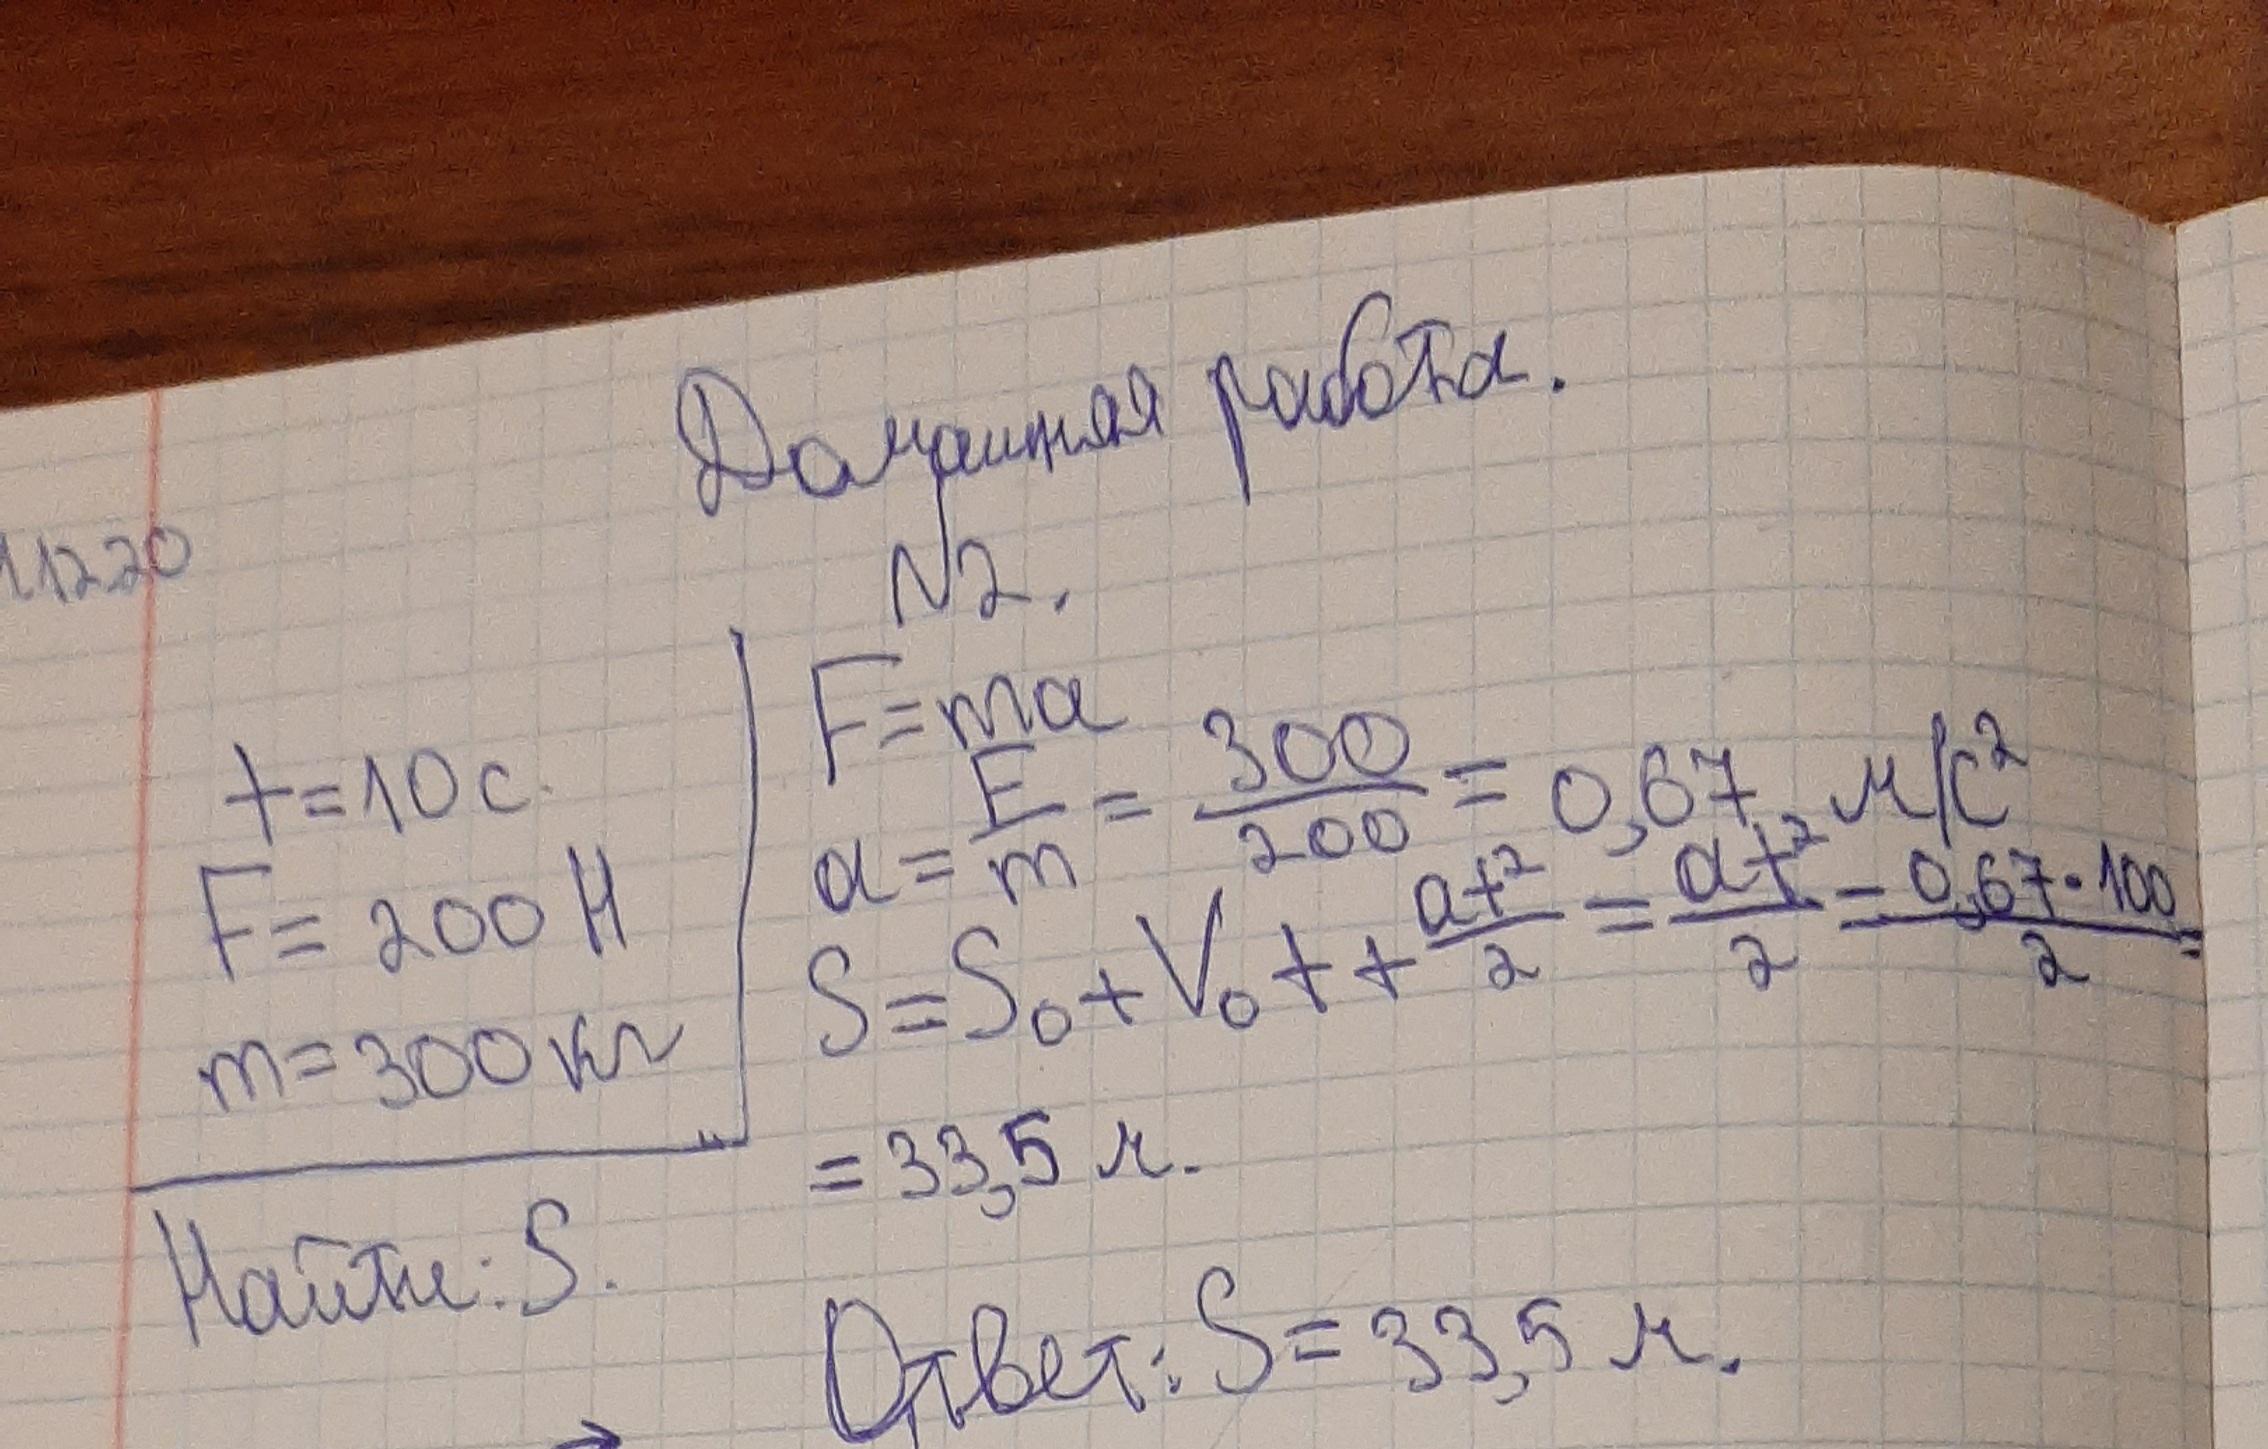 Домашняя работа.
11220
N2.
t=10 с.
F= 200 Н
m=300 кг
Найти: S.
F=ma
a = F/m = 300/200 = 0,67 м/с²
S=S₀+V₀t+at²/2 = at²/2 = 0,67·100/2 =
= 33,5 м.
Ответ: S= 33,5 м.